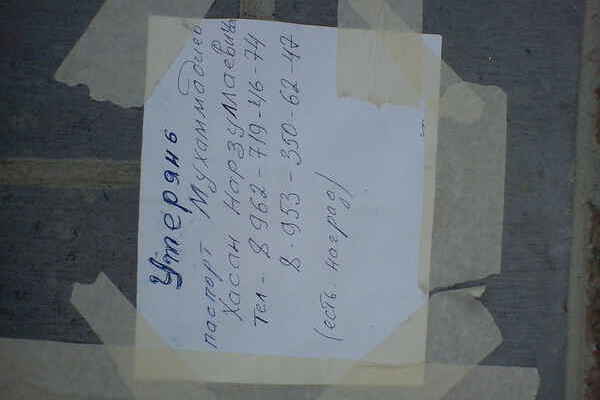 Утерянь
паспорт Мухаммадиев
Хасан Норзуллаевич
тел - 8 962 - 719-46-74
8 - 953 - 350 - 62 - 47
(есть. наград)